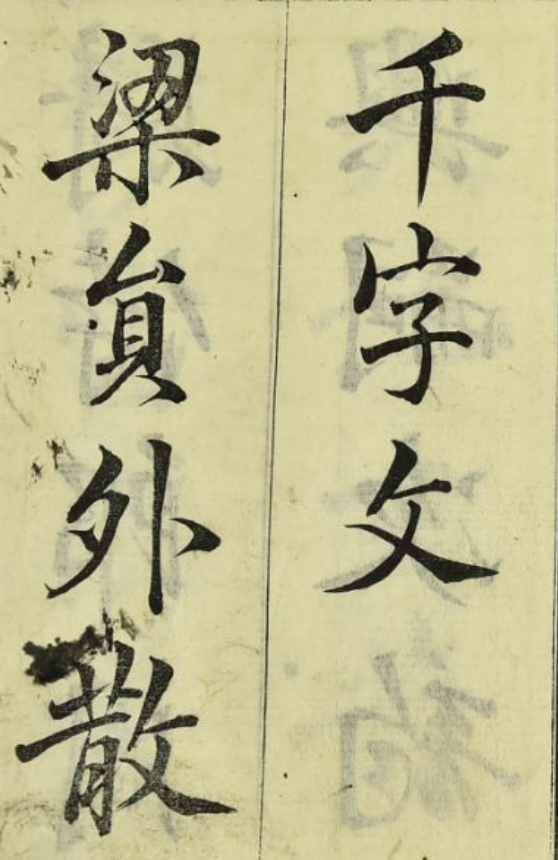 千字文
梁員外散